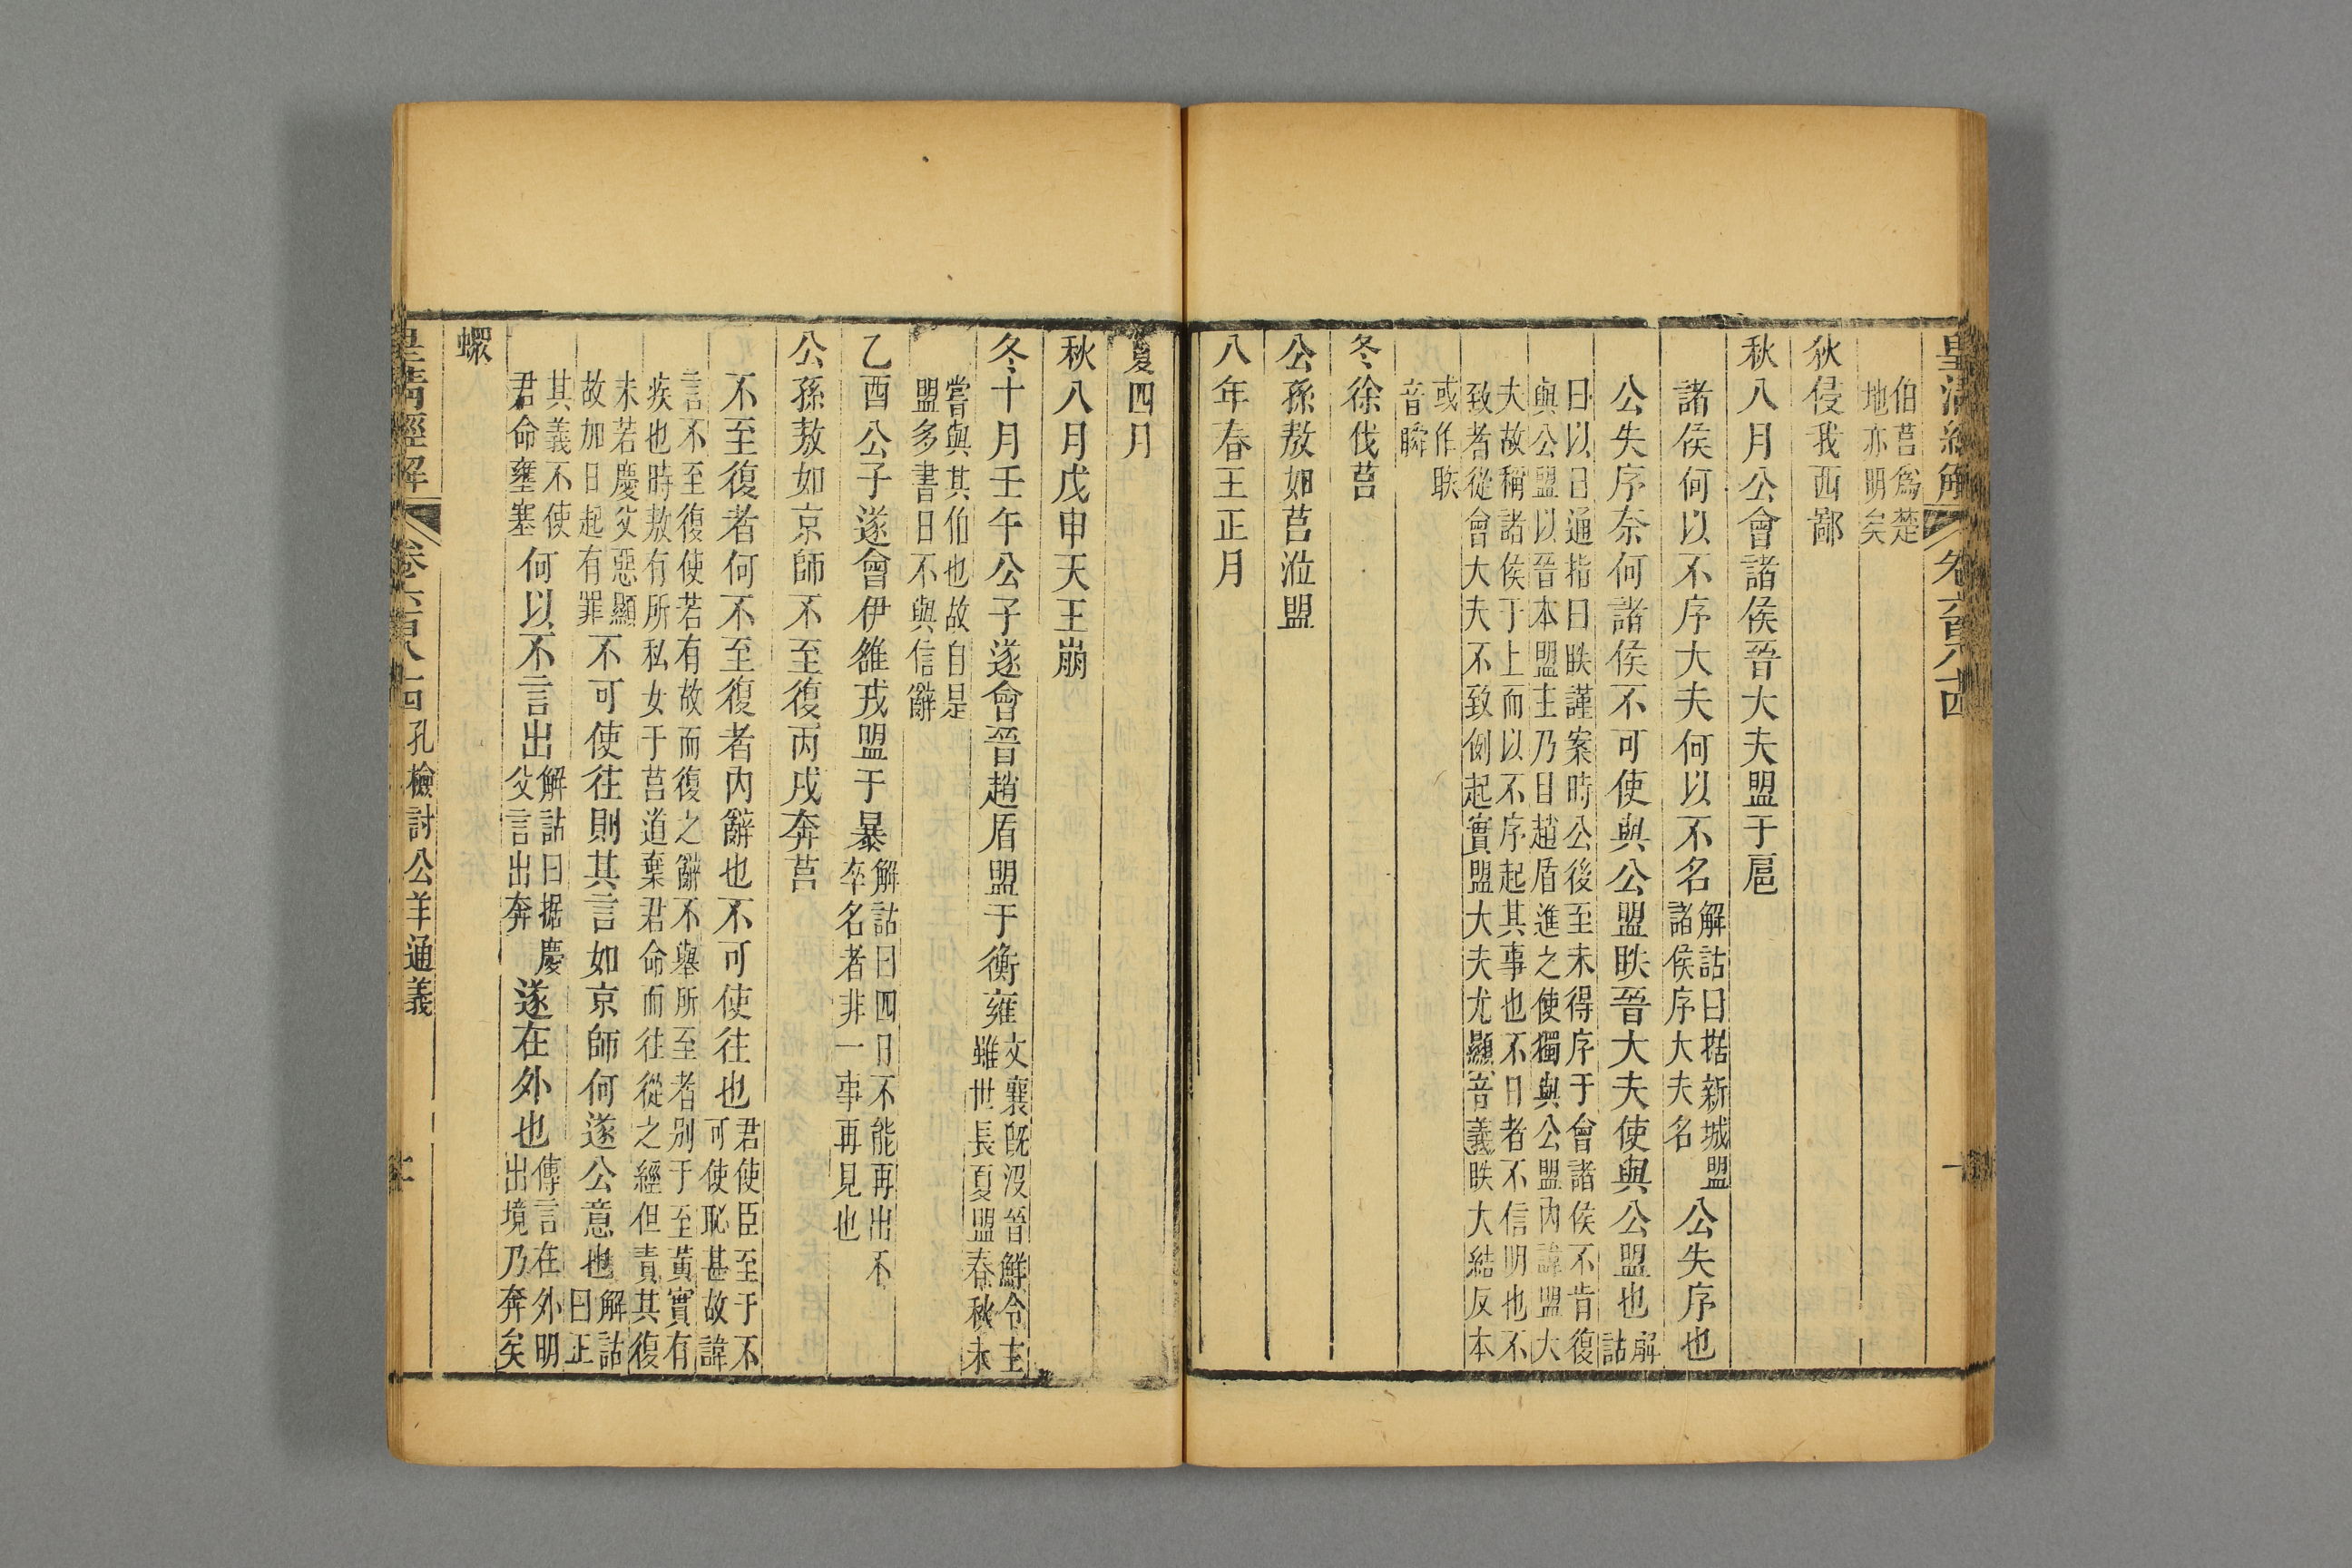 皇清經解 卷六百八十四
伯莒爲楚
地亦明矣
狄侵我西鄙
秋八月公會諸侯晉大夫盟于扈
諸侯何以不序大夫何以不名解詁曰据新城盟諸侯序大夫名公失序也
公失序奈何諸侯不可使與公盟眣晉大夫使與公盟也解詁
曰以目通指曰眣謹案時公後至未得序于會諸侯不肯復
與公盟以晉本盟主乃目趙盾進之使獨與公盟內諱盟大
夫故稱諸侯于上而以不序起其事也不日者不信明也不
致者從會大夫不致例起實盟大夫尤顯音義眣大結反本
或作眹
音瞬
冬徐伐莒
公孫敖如莒涖盟
八年春王正月
夏四月
秋八月戊申天王崩
冬十月壬午公子遂會晉趙盾盟于衡雍文襄旣沒晉鮮令主雖世長夏盟春秋未
嘗與其伯也故自是
盟多書日不與信辭
乙酉公子遂會伊雒戎盟于暴解詁曰四日不能再出不卒名者非一事再見也
公孫敖如京師不至復丙戌奔莒
不至復者何不至復者內辭也不可使往也君使臣至于不可使恥甚故諱
言不至復使若有故而復之辭不舉所至者别于至黃實有
疾也時敖有所私女于莒道棄君命而往從之經但責其復
未若慶父惡顯故加日起有罪不可使往則其言如京師何遂公意也解詁曰正
其義不使君命壅塞何以不言出解詁曰据慶父言出奔遂在外也傳言在外明出境乃奔矣
𧑄
皇清經解 卷六百八十四 孔檢討公羊通義